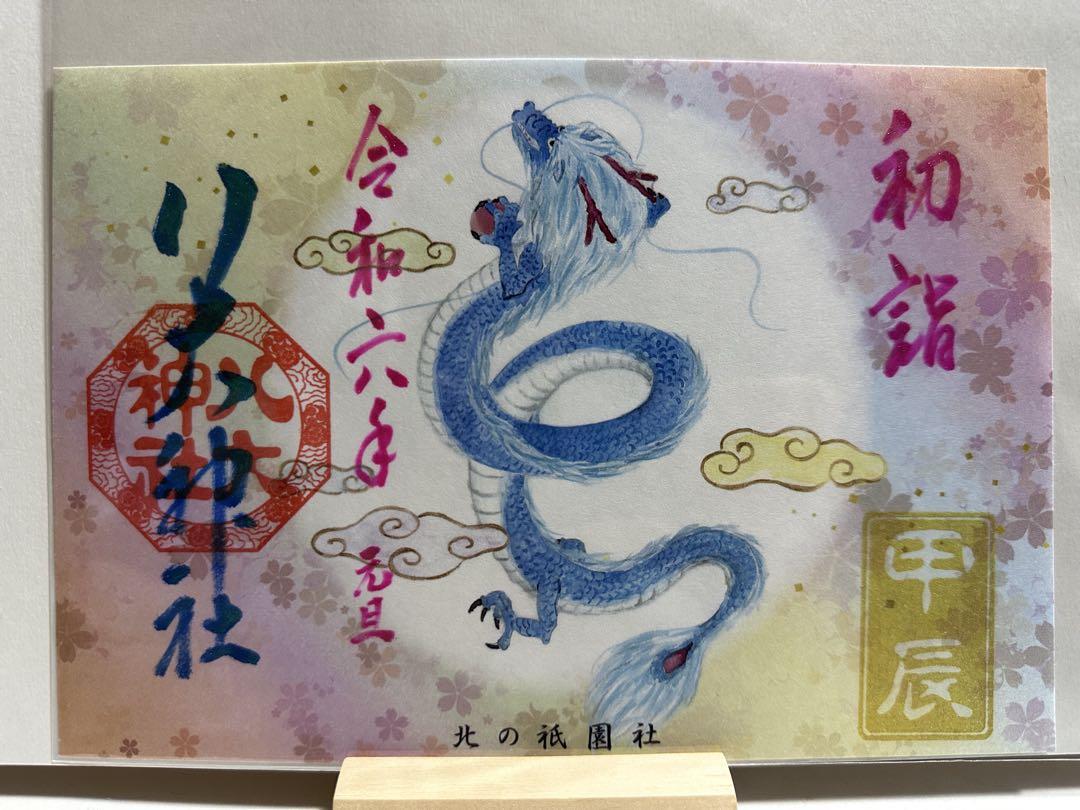 初詣
甲辰
令和六年元旦
八坂神社
八坂神社
北の祇園社